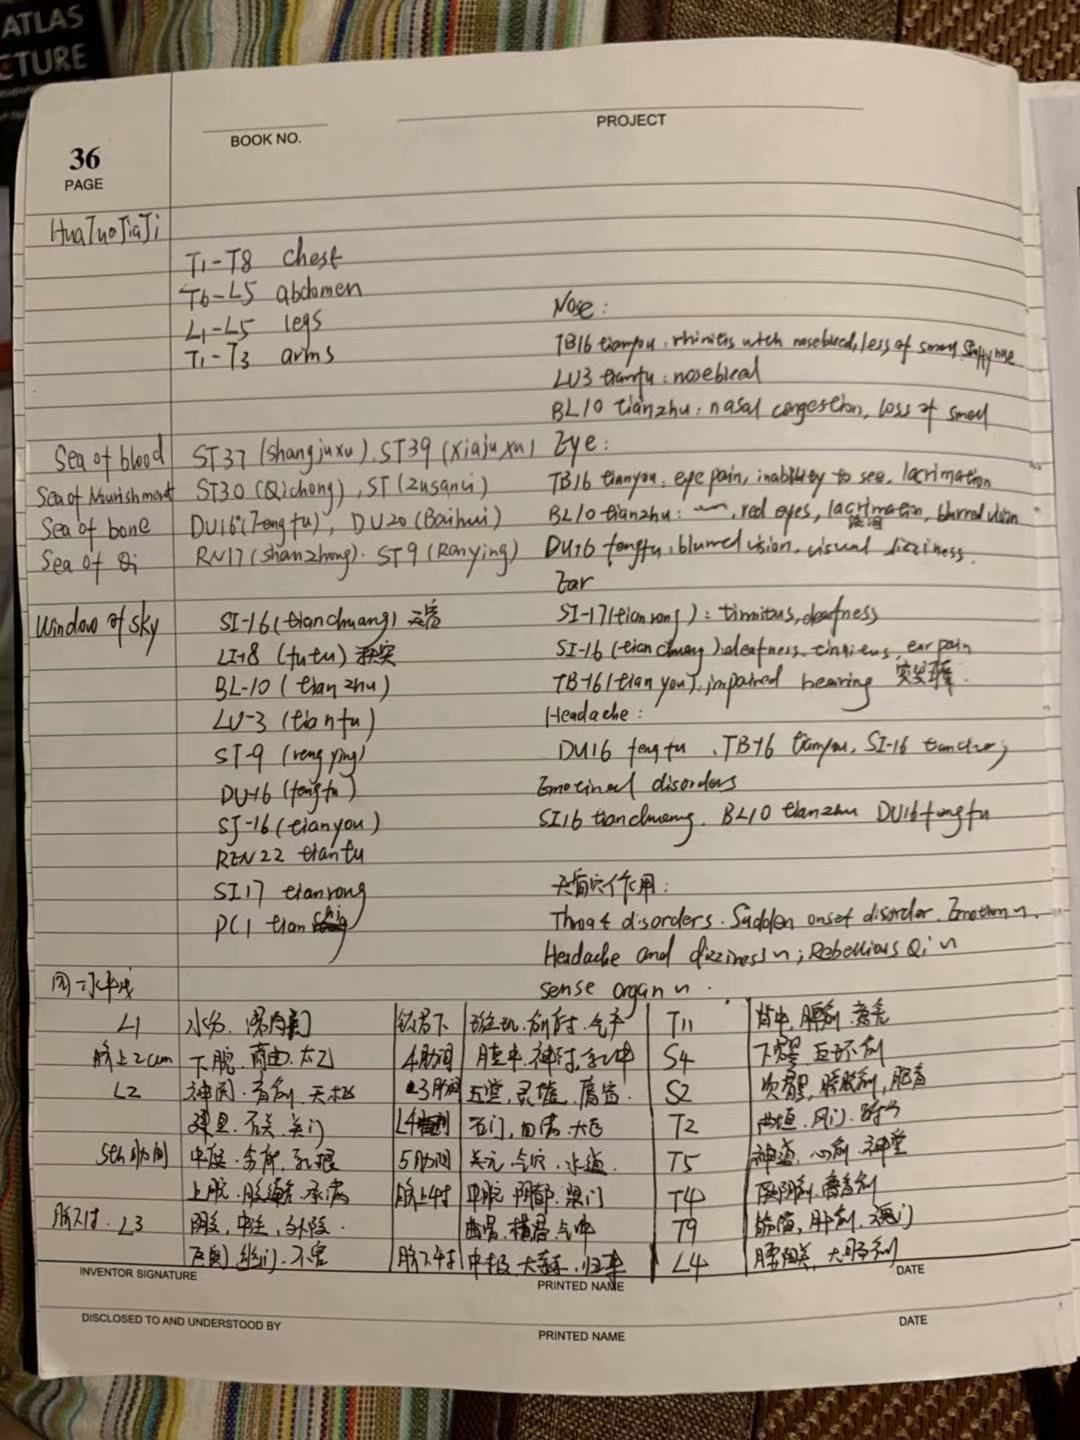 ATLAS
CTURE
36
PAGE
BOOK NO.
PROJECT
HuaTuoJiaJi
T1-T8 chest
T6-L5 abdomen
L1-L5 legs
T1-T3 arms
Nose:
TB16 tianyou: rhinitis with nosebleed, less of smell, stuffy nose
LU3 tianfu: nosebleed
BL10 tianzhu: nasal congestion, loss of smell
Sea of blood ST37 (shangjuxu). ST39 (xiajuxu)
Sea of Nourishment ST30 (Qichong), ST (zusanli)
Sea of bone DU16 (Fengfu), DU20 (Baihui)
Sea of Qi RN17 (shanzhong). ST9 (Renying)
Eye:
TB16 tianyou, eye pain, inability to see, lacrimation
BL10 tianzhu: 〜, red eyes, lacrimation, blurred vision
DU16 fengfu: blurred vision, visual dizziness.
Ear
Window of sky
SI-16 (tianchuang) 天窗
LI-18 (futu) 扶突
BL-10 (tianzhu)
LU-3 (tianfu)
ST-9 (rengying)
DU-16 (fengfu)
SJ-16 (tianyou)
REN22 tiantu
SI17 tianrong
PC1 tianchi
SI-17 (tianrong): tinnitus, deafness
SI-16 (tianchuang) deafness, tinnitus, ear pain
TB-16 (tianyou), impaired hearing 突发耳聋.
Headache:
DU16 fengfu, TB-16 tianyou, SI-16
Emotinal disorders
SI16 tianchuang. BL10 tianzhu DU16 fengfu
天窗穴作用:
Throat disorders. Sudden onset disorder. Emotion ~.
Headache and dizziness ~; Rebellious Qi ~
sense organ ~.
同一水平线
L1 水分. 滑肉门
脐上2cun 下脘. 商曲. 太乙
L2 神阙. 肓俞. 天枢
建里. 石关. 关门
5th肋间 中庭. 步廊. 乳根
上脘. 腹通谷. 承满
L3 阴交, 中注, 外陵.
锁骨下 璇玑. 俞府. 气户
4肋间 膻中. 神封. 乳中
3肋间 玉堂, 灵墟, 膺窗.
石门, 四满. 大巨
5肋间 关元. 气穴. 水道.
脐上4寸 中脘. 阴都. 梁门
曲骨. 横骨. 气冲
脐下4寸 中极. 大赫. 归来
T11 脊中, 脾俞. 意舍
S4 下髎 白环俞
S2 次髎, 膀胱俞, 胞肓
T2 风门.
T5 神道, 心俞. 神堂
T4 厥阴俞. 膏肓俞
T9 筋缩, 肝俞. 魂门
L4 腰阳关, 大肠俞
INVENTOR SIGNATURE
PRINTED NAME
DATE
DISCLOSED TO AND UNDERSTOOD BY
PRINTED NAME
DATE